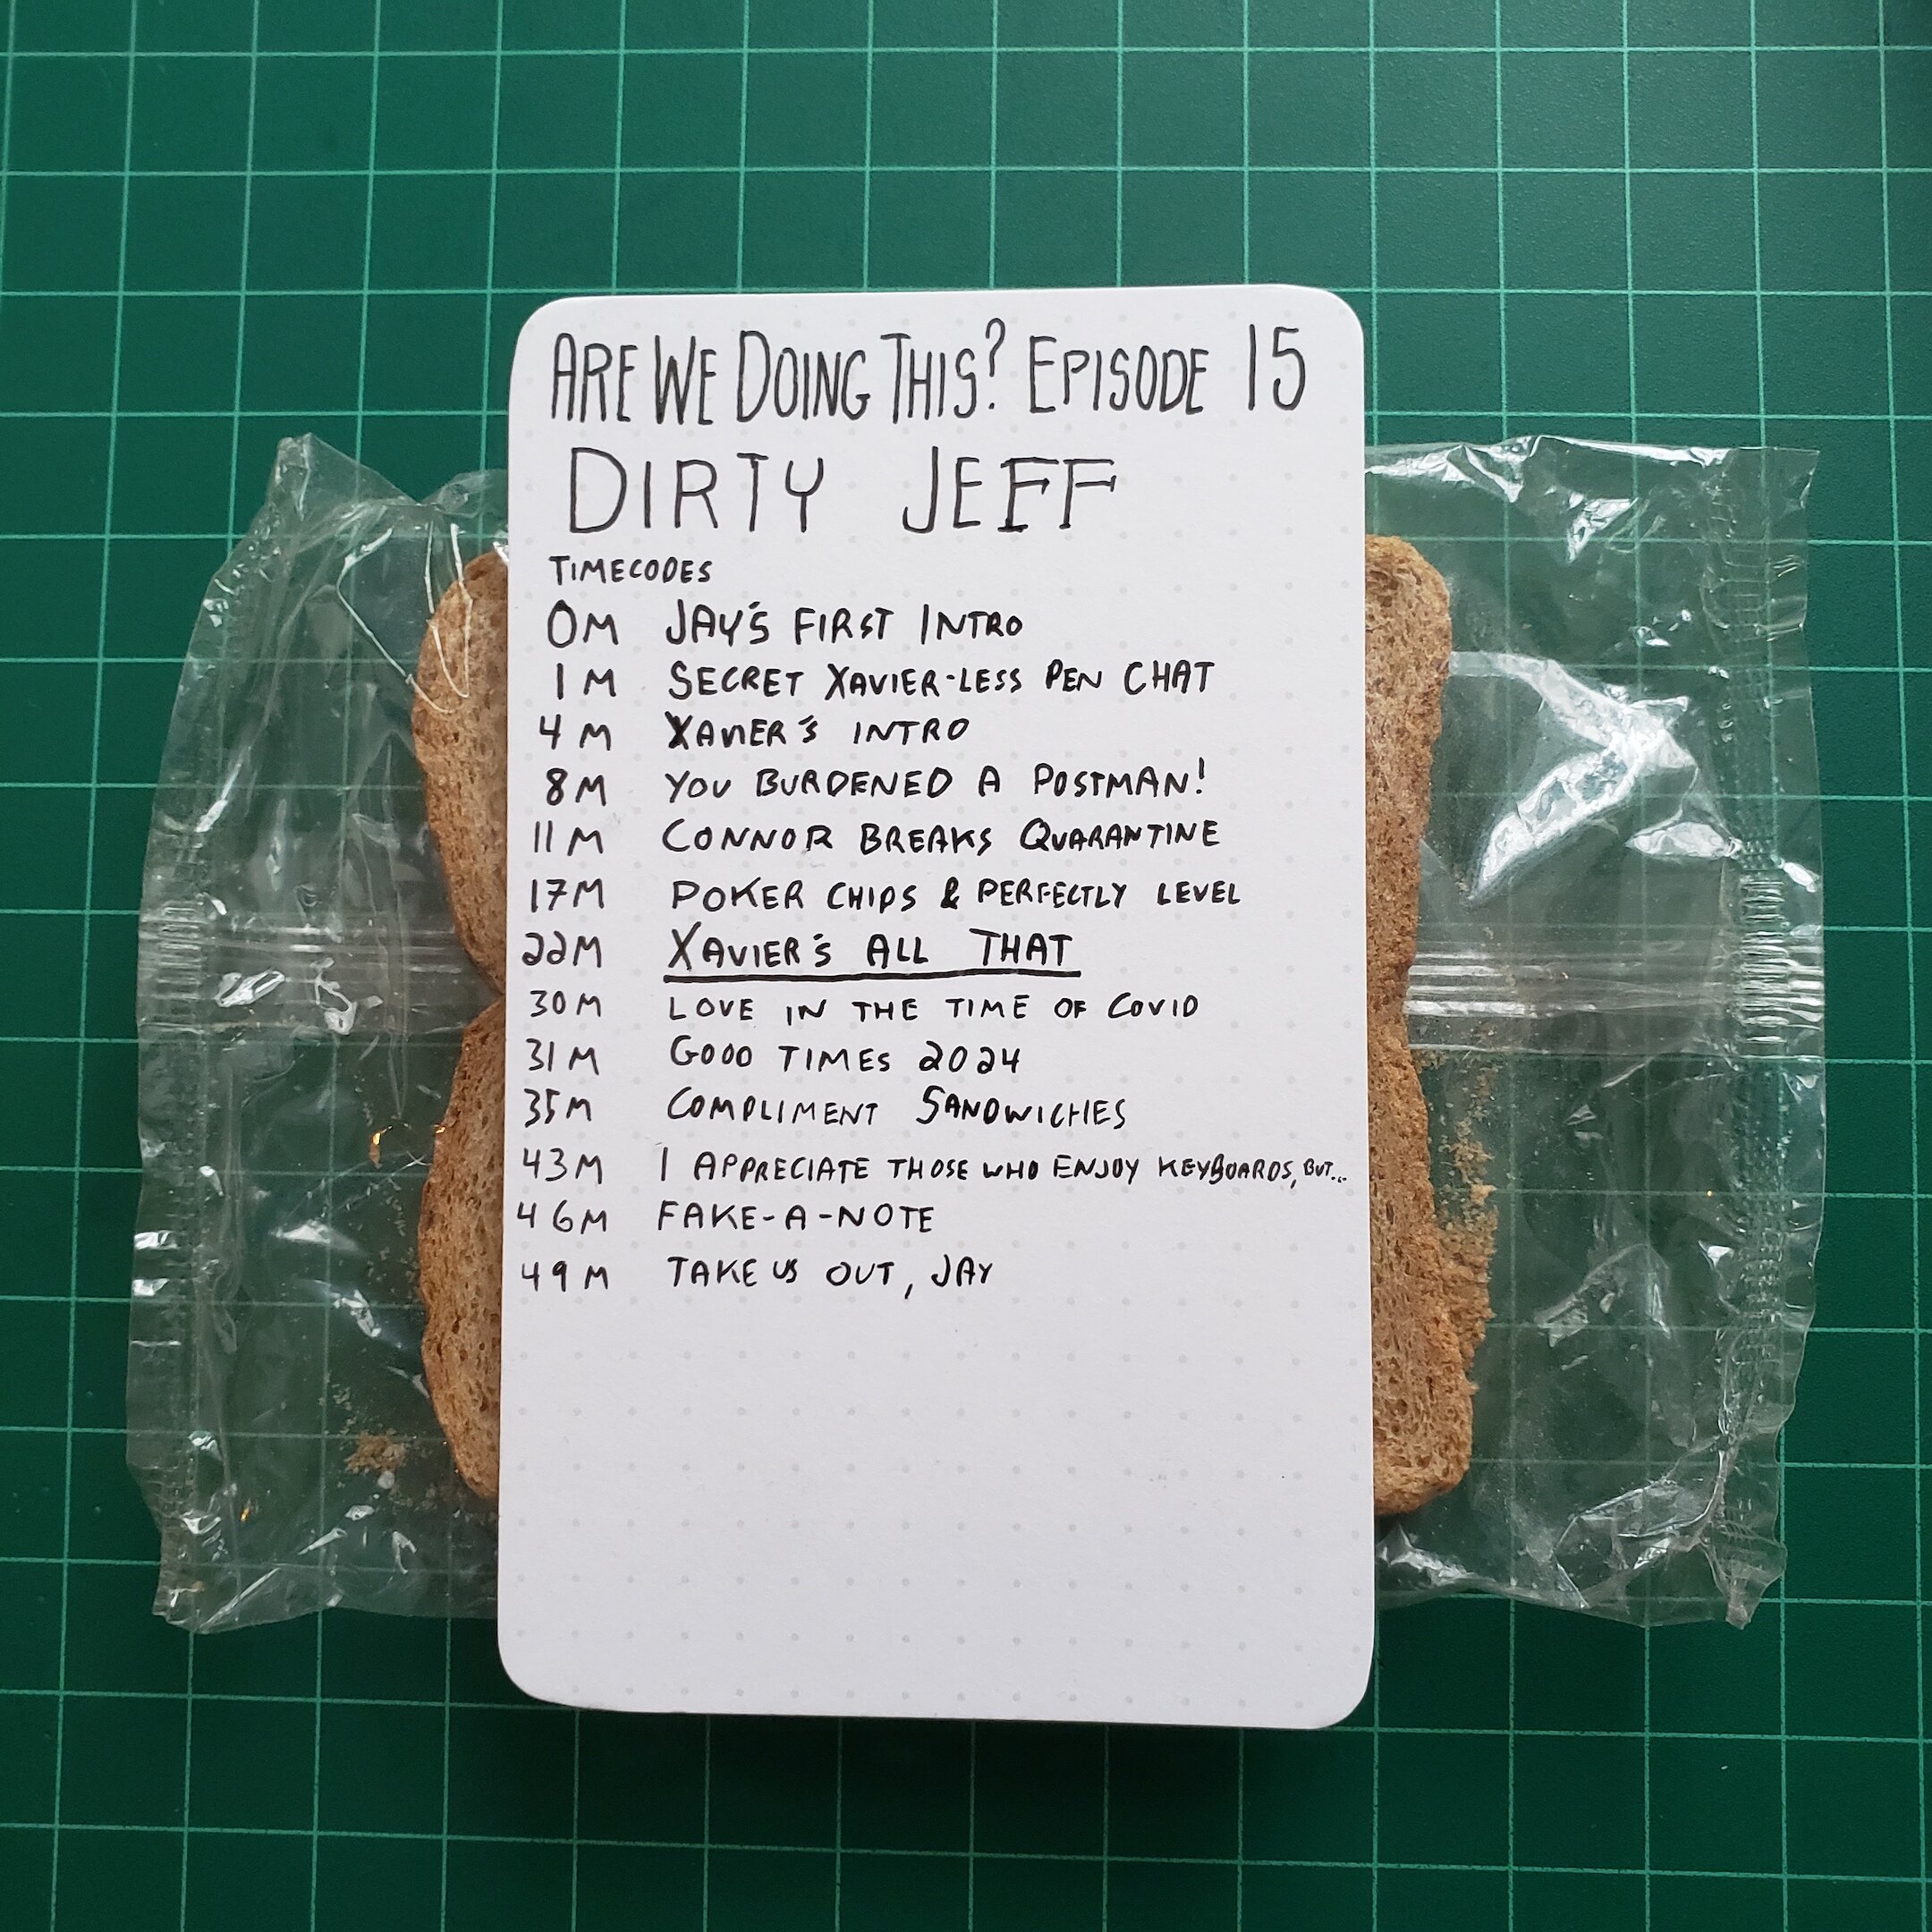 ARE WE DOING THIS? EPISODE 15
DIRTY JEFF
TIMECODES
0M JAY'S FIRST INTRO
1M SECRET XAVIER-LESS PEN CHAT
4M XAVIER'S INTRO
8M YOU BURDENED A POSTMAN!
11M CONNOR BREAKS QUARANTINE
17M POKER CHIPS & PERFECTLY LEVEL
22M XAVIER'S ALL THAT
30M LOVE IN THE TIME OF COVID
31M GOOD TIMES 2024
35M COMPLIMENT SANDWICHES
43M I APPRECIATE THOSE WHO ENJOY KEYBOARDS, BUT...
46M FAKE-A-NOTE
49M TAKE US OUT, JAY